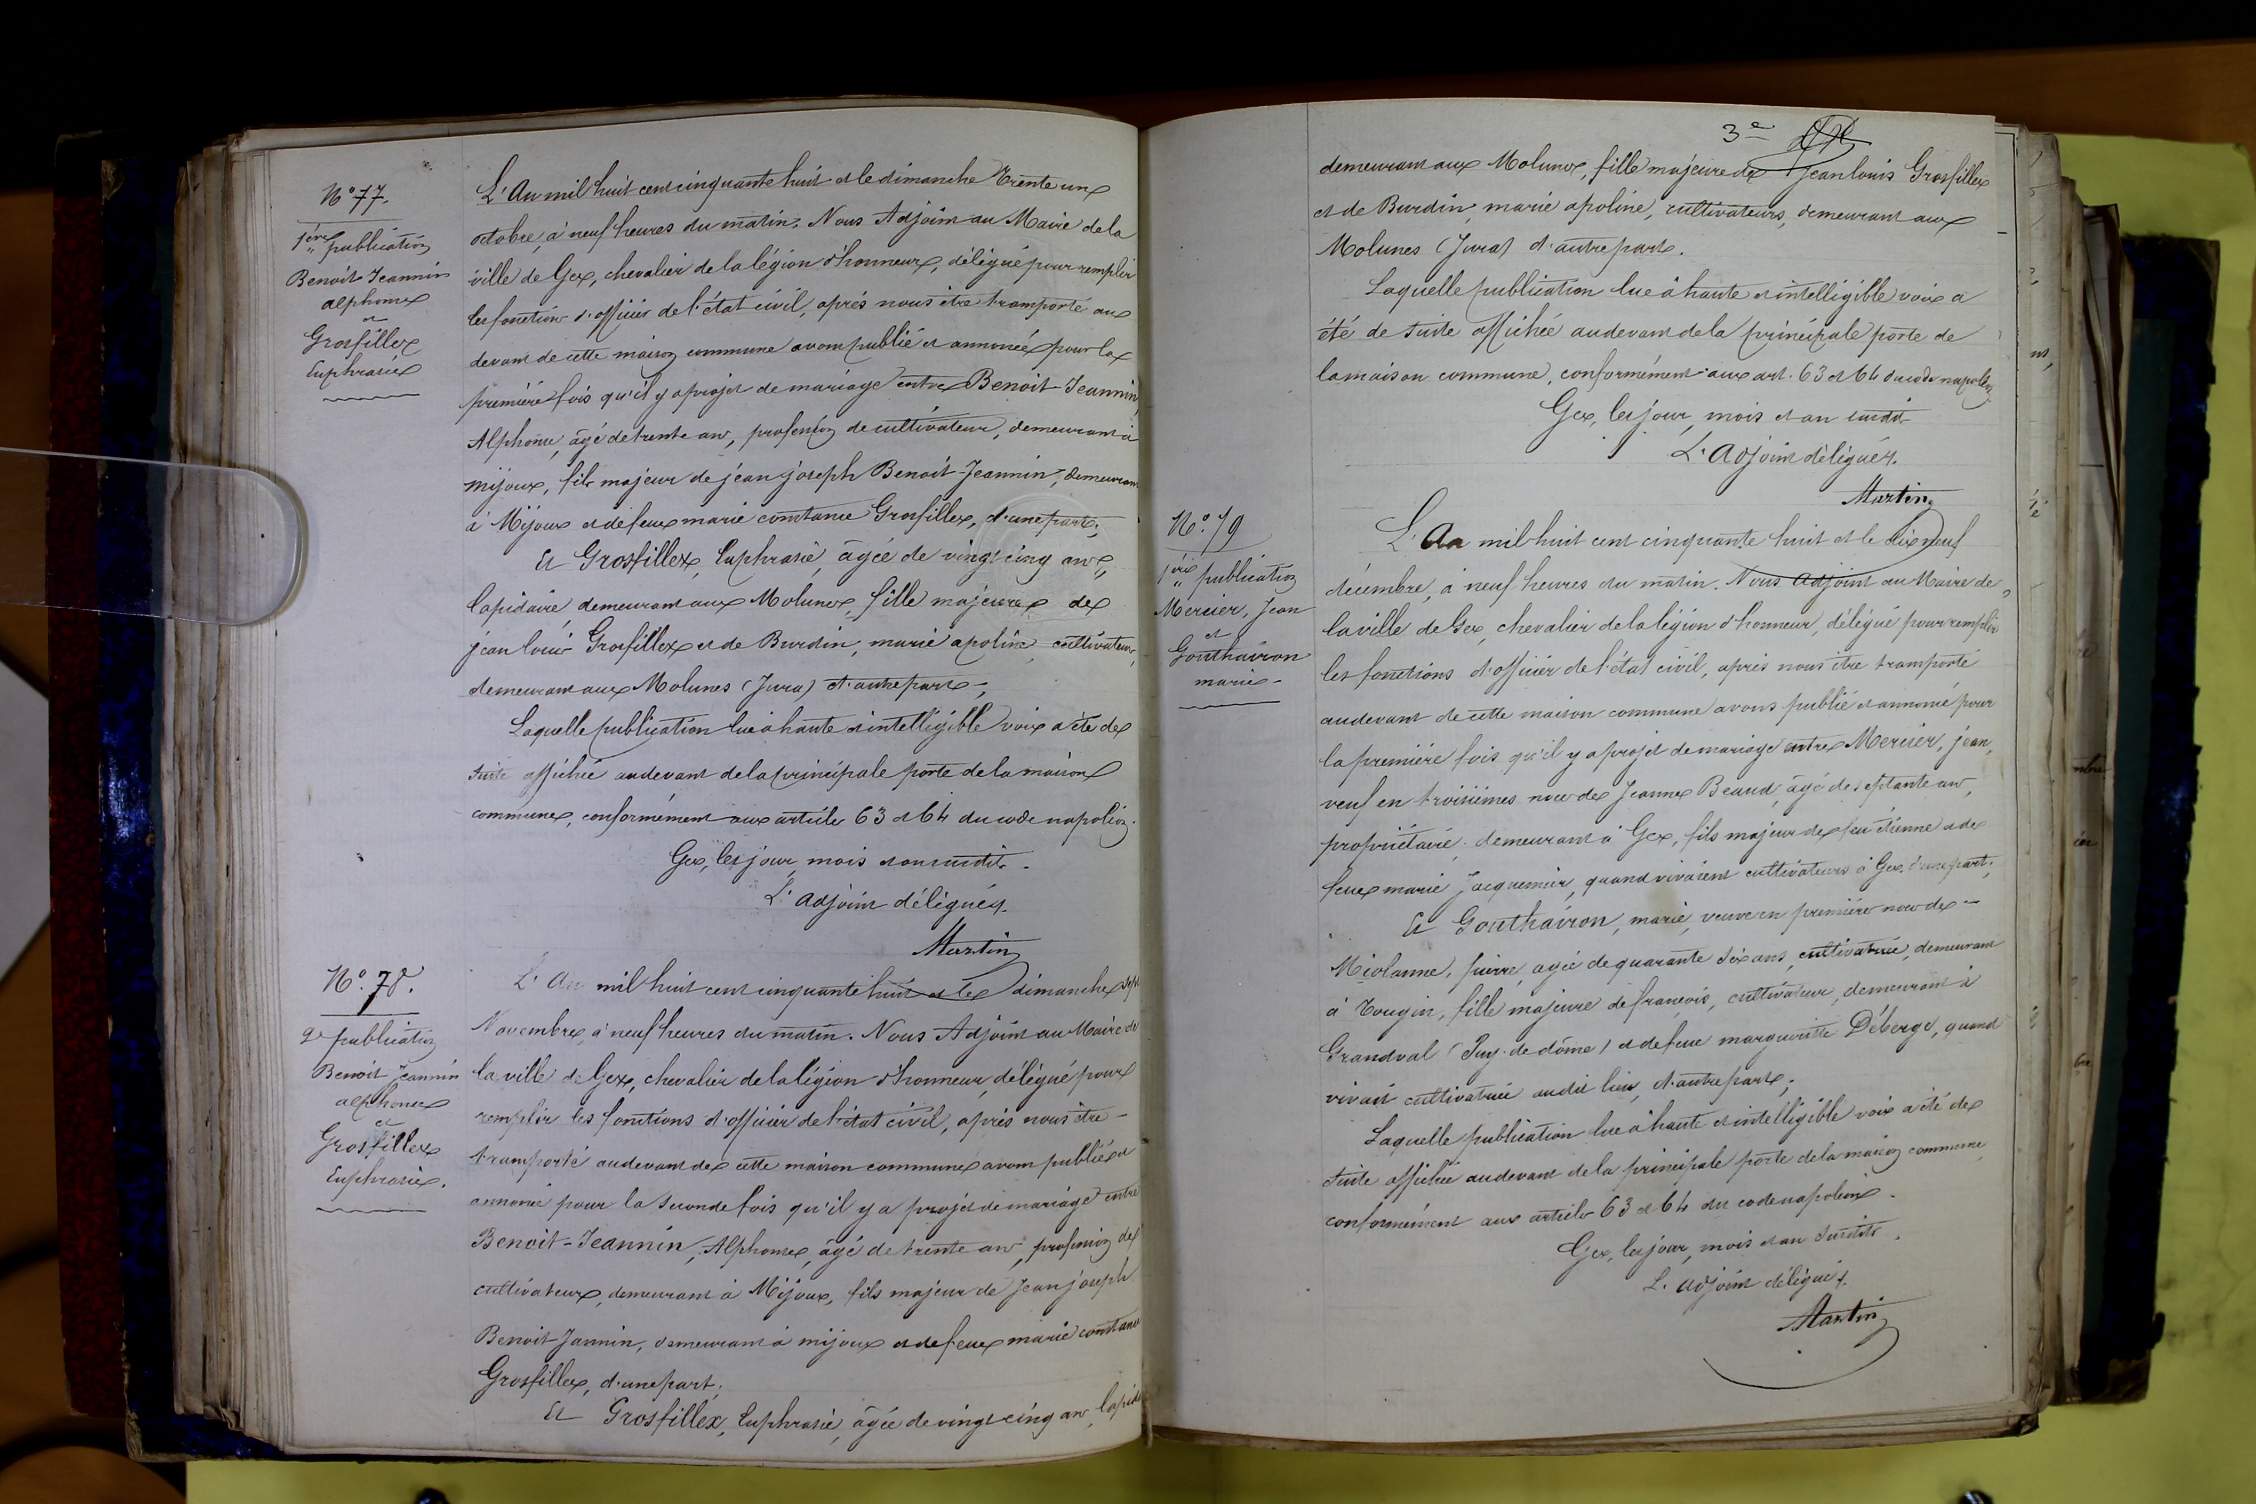 N° 77.
1ère publication
Benoit-Jeannin
alphonse
et
Grosfillex
Euphrasie
L'An mil huit cent cinquante huit et le dimanche Trente un
octobre, à neuf heures du matin. Nous Adjoint au Maire de la
ville de Gex, chevalier de la légion d'honneur, délégué pour remplir
les fonctions d'officier de l'état civil, après nous être transporté au
devant de cette maison commune avons publié et annoncé pour la
première fois qu'il y a projet de mariage entre Benoit-Jeannin,
Alphonse, âgé de trente ans, profession de cultivateur, demeurant à
mijoux, fils majeur de jean joseph Benoit-Jeannin, demeurant
à Mijoux et de feue marie constance Grosfillex, d'une part;
Et Grosfillex, Euphrasie, âgée de vingt cinq ans,
lapidaire, demeurant aux Molunes, fille majeure de
jean louis Grosfillex et de Burdin, marie apoline, cultivateurs,
demeurant aux Molunes (Jura) d'autre part;
Laquelle publication lue à haute et intelligible voix a été de
suite affichée au devant de la principale porte de la maison
commune, conformément aux articles 63 et 64 du code napoléon.
Gex, les jour, mois et an susdits.
L'adjoint délégué.
Martin
N° 78.
2e publication
Benoit Jeannin
alphonse
et
Grosfillex
Euphrasie.
L'An mil huit cent cinquante huit et le dimanche sept
Novembre, à neuf heures du matin. Nous Adjoint au Maire de
la ville de Gex, chevalier de la légion d'honneur, délégué pour
remplir les fonctions d'officier de l'état civil, après nous être
transporté au devant de cette maison commune avons publié et
annoncé pour la seconde fois qu'il y a projet de mariage entre
Benoit-Jeannin, Alphonse, âgé de trente ans, profession de
cultivateur, demeurant à Mijoux, fils majeur de Jean joseph
Benoit-Jannin, demeurant à mijoux et de feue marie constance
Grosfillex, d'une part;
Et Grosfillex, Euphrasie, âgée de vingt cinq ans,
3e
demeurant aux Molunes, fille majeure de Jean louis Grosfillex
et de Burdin, marie apoline, cultivateurs, demeurant aux
Molunes (Jura) d'autre part.
Laquelle publication lue à haute et intelligible voix a
été de suite affichée au devant de la principale porte de
la maison commune, conformément aux art. 63 et 64 du code napoléon
Gex, les jour, mois et an susdit
L'Adjoint délégué.
Martin
N° 79
1ère publication
Mercier, Jean
et
Gouthairon
marie
L'An mil huit cent cinquante huit et le dix neuf
décembre, à neuf heures du matin. Nous adjoint au Maire de
la ville de Gex, chevalier de la légion d'honneur, délégué pour remplir
les fonctions d'officier de l'état civil, après nous être transporté
au devant de cette maison commune avons publié et annoncé pour
la première fois qu'il y a projet de mariage entre Mercier, jean,
veuf en troisièmes noces de Jeanne Beaud, âgé de septante ans,
propriétaire, demeurant à Gex, fils majeur de feu étienne et de
feue marie Jacquemier, quand vivaient cultivateurs à Gex, d'une part;
Et Gouthairon, marie, veuve en première noce de
Miolanne, pierre, agée de quarante six ans, cultivatrice, demeurant
à Tougin, fille majeure de françois, cultivateur, demeurant à
Grandval (Puy-de-dôme) et de feue marguerite Déberge, quand
vivait cultivatrice audit lieu, d'autre part;
Laquelle publication lue à haute et intelligible voix a été de
suite affichée au devant de la principale porte de la maison commune,
conformément aux articles 63 et 64 du code napoléon.
Gex, les jour, mois et an susdits.
L'adjoint délégué.
Martin